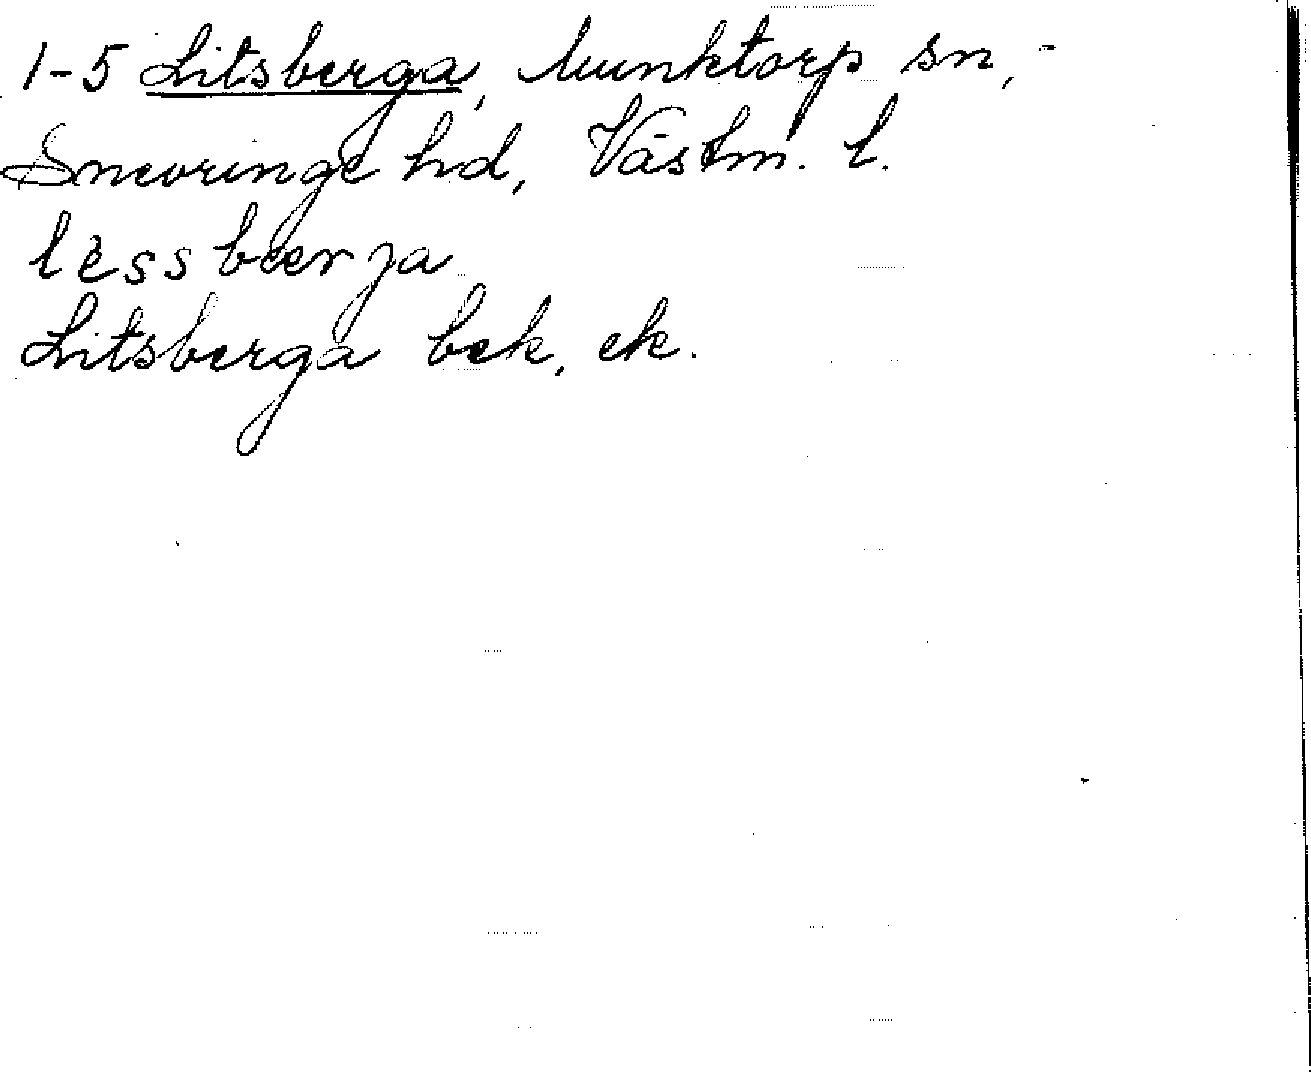 1-5 Litsberga, Munktorp sn,-
Snevringe hd, Västm. l.
lessbærja
Litsberga bek, ek.